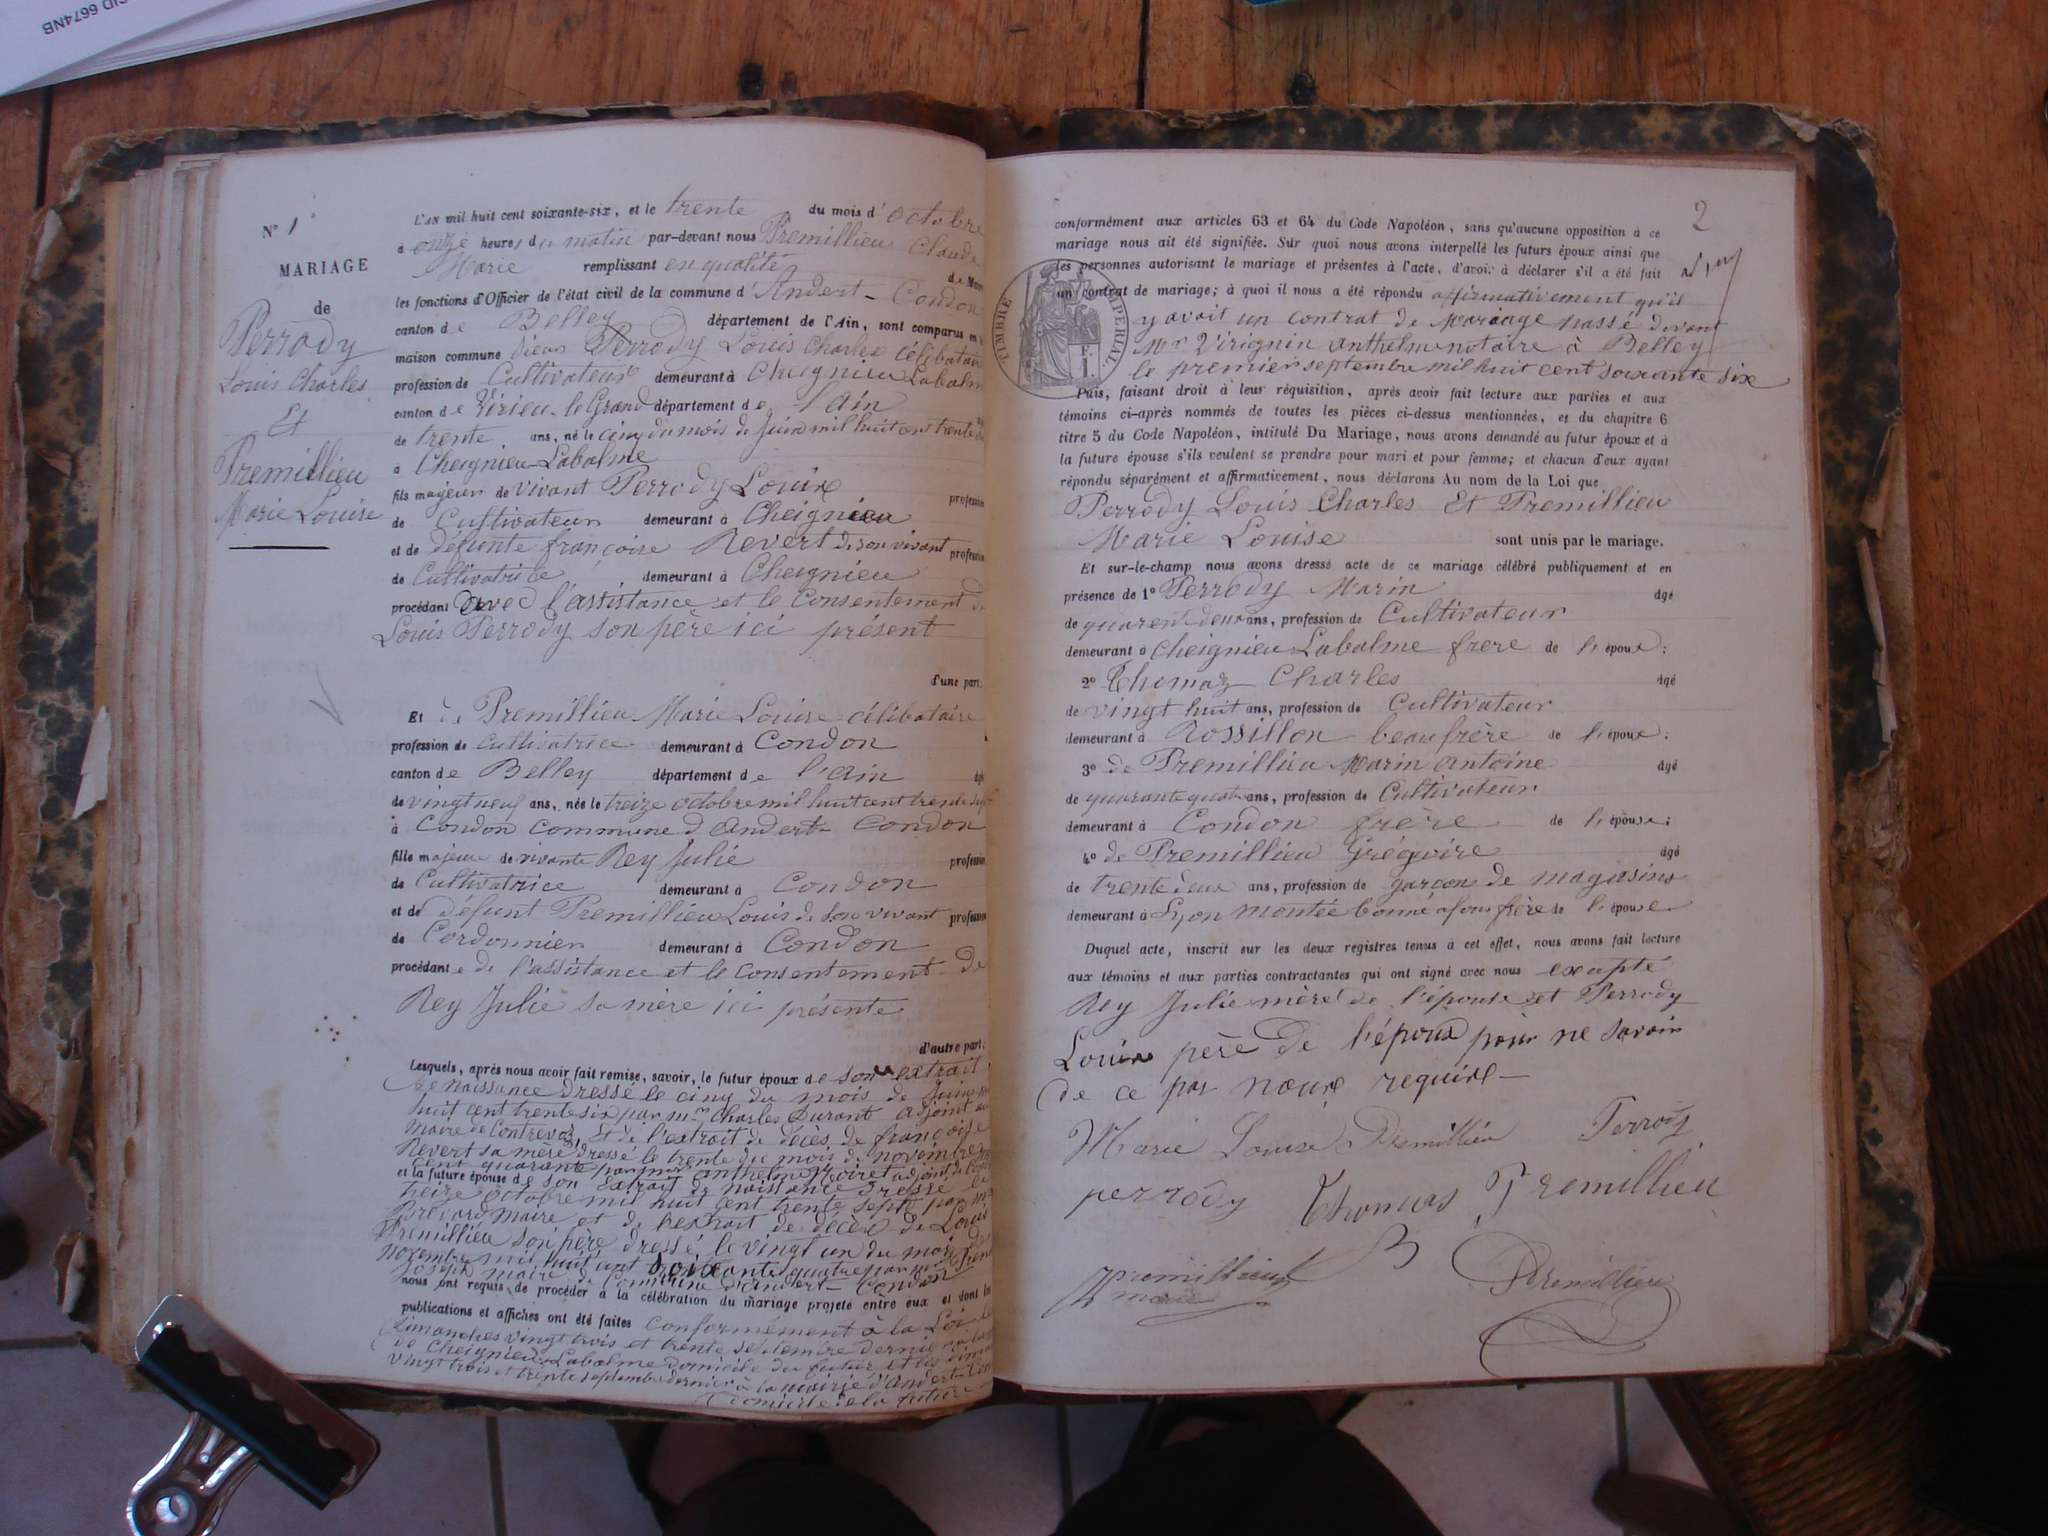 CID 6674NB
N° 1
MARIAGE
de
Perrody
Louis Charles
Et
Premillieu
Marie Louise
L'AN mil huit cent soixante-six, et le trente du mois d'octobre
à onze heures du matin par-devant nous Premillieu Claude
Marie remplissant en qualité de
les fonctions d'Officier de l'état civil de la commune d'Andert-Condon
canton de Belley département de l'Ain, sont comparus en
maison commune sieur Perrody Louis Charles célibataire
profession de Cultivateur demeurant à Cheignieu Labalme
canton de Virieu-le-Grand département de l'Ain
de trente ans, né le cinq du mois de juin mil huit cent trente
à Cheignieu-Labalme
fils majeur de vivant Perrody Louis profession
de Cultivateur demeurant à Cheignieu
et de défunte françoise Revert de son vivant profession
de Cultivatrice demeurant à Cheignieu
procédant avec l'assistance et le consentement de
Louis Perrody son père ici présent
d'une part;
Et de Premillieu Marie Louise célibataire
profession de cultivatrice demeurant à Condon
canton de Belley département de l'ain âgé
de vingt neuf ans, née le treize octobre mil huit cent trente sept
à Condon commune d'andert-Condon
fille majeure de vivante Rey Julie profession
de Cultivatrice demeurant à Condon
et de défunt Premillieu Louis de son vivant profession
de Cordonnier demeurant à Condon
procédant e de l'assistance et le consentement de
Rey Julie sa mère ici présente
d'autre part;
Lesquels, après nous avoir fait remise, savoir, le futur époux de son extrait
de naissance dressé le cinq du mois de Juin mil
huit cent trente six par mr Charles Durant adjoint au
Maire de Contrevoz, et de l'extrait de décès de françoise
Revert sa mère dressé le trente du mois de novembre
cent quarante par mr anthelme adjoint
et la future épouse de son extrait de naissance dressé le
treize octobre mil huit cent trente sept par mr
Brevard maire et de l'extrait de décès de Louis
Premillieu son père dressé le vingt un du mois de
novembre mil huit cent soixante quatre par mr
Joseph maire de la Commune d'andert-Condon
nous ont requis de procéder à la célébration du mariage projeté entre eux et dont les
publications et affiches ont été faites conformément à la Loi
dimanches vingt trois et trente septembre dernier
de Cheignieu-Labalme domicile du futur et les
vingt trois et trente septembre dernier à la mairie d'Andert-
domicile de la future
2
conformément aux articles 63 et 64 du Code Napoléon, sans qu'aucune opposition à ce
mariage nous ait été signifiée. Sur quoi nous avons interpellé les futurs époux ainsi que
les personnes autorisant le mariage et présentes à l'acte, d'avoir à déclarer s'il a été fait
un contrat de mariage; à quoi il nous a été répondu affirmativement qu'il
y avait un contrat de mariage passé devant
Mr Virignin anthelme notaire à Belley
le premier septembre mil huit cent soixante six
TIMBRE IMPERIAL
F.
1.
Puis, faisant droit à leur réquisition, après avoir fait lecture aux parties et aux
témoins ci-après nommés de toutes les pièces ci-dessus mentionnées, et du chapitre 6
titre 5 du Code Napoléon, intitulé Du Mariage, nous avons demandé au futur époux et à
la future épouse s'ils veulent se prendre pour mari et pour femme; et chacun d'eux ayant
répondu séparément et affirmativement, nous déclarons Au nom de la Loi que
Perrody Louis Charles Et Premillieu
Marie Louise sont unis par le mariage.
Et sur-le-champ nous avons dressé acte de ce mariage célébré publiquement et en
présence de 1° Perrody Marin âgé
de quarante deux ans, profession de Cultivateur
demeurant à Cheignieu Labalme frere de l'époux;
2° Thomas Charles âgé
de vingt huit ans, profession de Cultivateur
demeurant à Rossillon beaufrère de l'époux;
3° de Premillieu Marin Antoine âgé
de quarante quatre ans, profession de Cultivateur
demeurant à Condon frere de l'épouse;
4° de Premillieu Grégoire âgé
de trente deux ans, profession de garçon de magasins
demeurant à Lyon montée bonne afous frère de l'épouse
Duquel acte, inscrit sur les deux registres tenus à cet effet, nous avons fait lecture
aux témoins et aux parties contractantes qui ont signé avec nous excepté
Rey Julie mère de l'épouse et Perrody
Louis père de l'époux pour ne savoir
de ce par nous requise
Marie Louise Premillieu Perrody
perrody Thomas Premillieu
B
premillieu
marie
Premillieu